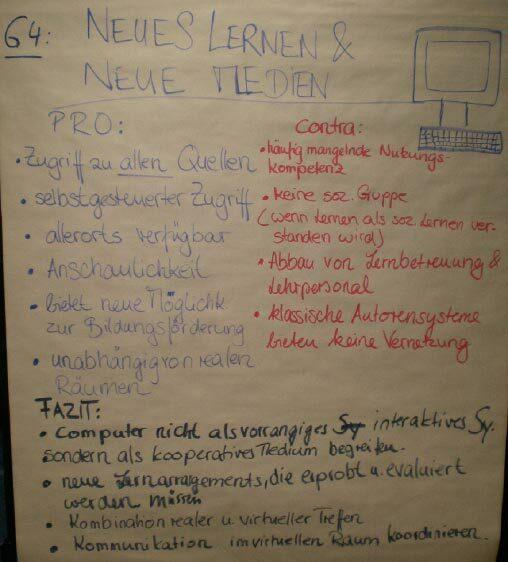 G4: NEUES LERNEN &
NEUE MEDIEN
PRO:
• Zugriff zu allen Quellen
• selbstgesteuerter Zugriff
• allerorts verfügbar
• Anschaulichkeit
• bietet neue Möglichk.
zur Bildungsförderung
• unabhängig von realen
Räumen
Contra:
• häufig mangelnde Nutzungs-
kompetenz
• keine soz. Gruppe
(wenn Lernen als soz. Lernen ver-
standen wird)
• Abbau von Lernbetreuung &
Lehrpersonal
• klassische Autorensysteme
bieten keine Vernetzung
FAZIT:
• Computer nicht als vorrangiges Sy interaktives Sy.
sondern als kooperatives Medium begreifen.
• neue Lernarrangements, die erprobt u. evaluiert
werden müssen
• Kombination realer u. virtueller Treffen
• Kommunikation im virtuellen Raum koordinieren.